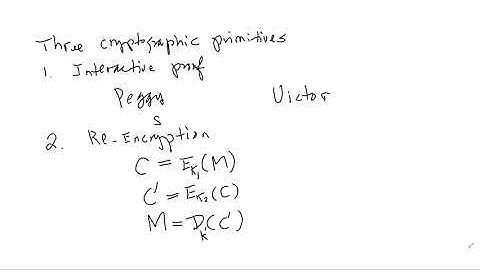 Three cryptographic primitives
1. Interactive proof
Peggy Victor
S
2. Re-Encryption
C = E_{K_1}(M)
C' = E_{K_2}(C)
M = D_K(C')